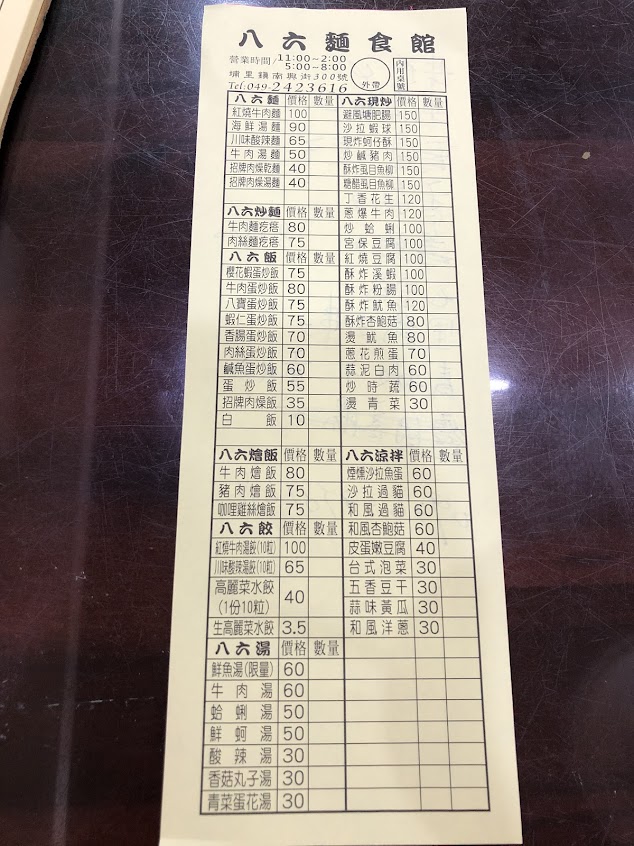 八六麵食館
營業時間/11:00~2:00
5:00~8:00
埔里鎮南興街300號
Tel:049-2423616
外帶
內用桌號
八六麵 價格 數量
紅燒牛肉麵 100
海鮮湯麵 90
川味酸辣麵 65
牛肉湯麵 50
招牌肉燥乾麵 40
招牌肉燥湯麵 40
八六炒麵 價格 數量
牛肉麵疙瘩 80
肉絲麵疙瘩 75
八六飯 價格 數量
櫻花蝦蛋炒飯 75
牛肉蛋炒飯 80
八寶蛋炒飯 75
蝦仁蛋炒飯 75
香腸蛋炒飯 70
肉絲蛋炒飯 70
鹹魚蛋炒飯 60
蛋炒飯 55
招牌肉燥飯 35
白飯 10
八六燴飯 價格 數量
牛肉燴飯 80
豬肉燴飯 75
咖哩雞絲燴飯 75
八六餃 價格 數量
紅燒牛肉湯餃(10粒) 100
川味酸辣湯餃(10粒) 65
高麗菜水餃
(1份10粒) 40
生高麗菜水餃 3.5
八六湯 價格 數量
鮮魚湯(限量) 60
牛肉湯 60
蛤蜊湯 50
鮮蚵湯 50
酸辣湯 30
香菇丸子湯 30
青菜蛋花湯 30
八六現炒 價格 數量
避風塘肥腸 150
沙拉蝦球 150
現炸蚵仔酥 150
炒鹹豬肉 150
酥炸風目魚柳 150
糖醋風目魚柳 150
丁香花生 120
蔥爆牛肉 120
炒蛤蜊 100
宮保豆腐 100
紅燒豆腐 100
酥炸溪蝦 100
酥炸粉腸 100
酥炸魷魚 120
酥炸杏鮑菇 80
燙魷魚 80
蔥花煎蛋 70
蒜泥白肉 60
炒時蔬 60
燙青菜 30
八六涼拌 價格 數量
煙燻沙拉魚蛋 60
沙拉過貓 60
和風過貓 60
和風杏鮑菇 60
皮蛋嫩豆腐 40
台式泡菜 30
五香豆干 30
蒜味黃瓜 30
和風洋蔥 30